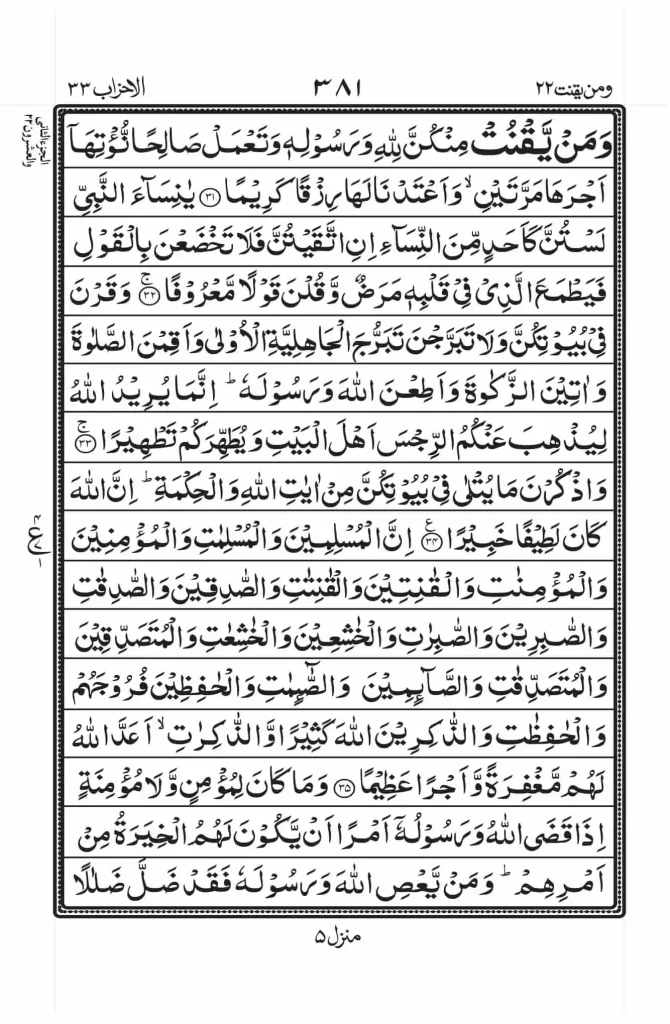 ومن يقنت ٢٢
٣٨١
الاحزاب ٣٣
الجزء الثانى
والعشرون ٢٢
وَمَنۡ يَّقۡنُتۡ مِنۡكُنَّ لِلّٰهِ وَرَسُوۡلِهٖ وَتَعۡمَلۡ صَالِحًا نُّؤۡتِهَاۤ
اَجۡرَهَا مَرَّتَيۡنِۙ وَاَعۡتَدۡنَا لَهَا رِزۡقًا كَرِيۡمًا ﴿۳۱﴾ يٰنِسَآءَ النَّبِىِّ
لَسۡتُنَّ كَاَحَدٍ مِّنَ النِّسَآءِ اِنِ اتَّقَيۡتُنَّ فَلَا تَخۡضَعۡنَ بِالۡقَوۡلِ
فَيَطۡمَعَ الَّذِىۡ فِىۡ قَلۡبِهٖ مَرَضٌ وَّقُلۡنَ قَوۡلًا مَّعۡرُوۡفًا ﴿ۚ۳۲﴾ وَقَرۡنَ
فِىۡ بُيُوۡتِكُنَّ وَلَا تَبَرَّجۡنَ تَبَرُّجَ الۡجَاهِلِيَّةِ الۡاُوۡلٰى وَاَقِمۡنَ الصَّلٰوةَ
وَاٰتِيۡنَ الزَّكٰوةَ وَاَطِعۡنَ اللّٰهَ وَرَسُوۡلَهٗ ؕ اِنَّمَا يُرِيۡدُ اللّٰهُ
لِيُذۡهِبَ عَنۡكُمُ الرِّجۡسَ اَهۡلَ الۡبَيۡتِ وَيُطَهِّرَكُمۡ تَطۡهِيۡرًا ﴿ۚ۳۳﴾
وَاذۡكُرۡنَ مَا يُتۡلٰى فِىۡ بُيُوۡتِكُنَّ مِنۡ اٰيٰتِ اللّٰهِ وَالۡحِكۡمَةِ ؕ اِنَّ اللّٰهَ
كَانَ لَطِيۡفًا خَبِيۡرًا ﴿۳۴﴾ اِنَّ الۡمُسۡلِمِيۡنَ وَالۡمُسۡلِمٰتِ وَالۡمُؤۡمِنِيۡنَ
وَالۡمُؤۡمِنٰتِ وَالۡقٰنِتِيۡنَ وَالۡقٰنِتٰتِ وَالصّٰدِقِيۡنَ وَالصّٰدِقٰتِ
وَالصّٰبِرِيۡنَ وَالصّٰبِرٰتِ وَالۡخٰشِعِيۡنَ وَالۡخٰشِعٰتِ وَالۡمُتَصَدِّقِيۡنَ
وَالۡمُتَصَدِّقٰتِ وَالصَّآئِمِيۡنَ وَالصّٰٓئِمٰتِ وَالۡحٰفِظِيۡنَ فُرُوۡجَهُمۡ
وَالۡحٰفِظٰتِ وَالذّٰكِرِيۡنَ اللّٰهَ كَثِيۡرًا وَّالذّٰكِرٰتِۙ اَعَدَّ اللّٰهُ
لَهُمۡ مَّغۡفِرَةً وَّاَجۡرًا عَظِيۡمًا ﴿۳۵﴾ وَمَا كَانَ لِمُؤۡمِنٍ وَّلَا مُؤۡمِنَةٍ
اِذَا قَضَى اللّٰهُ وَرَسُوۡلُهٗۤ اَمۡرًا اَنۡ يَّكُوۡنَ لَهُمُ الۡخِيَرَةُ مِنۡ
اَمۡرِهِمۡ ؕ وَمَنۡ يَّعۡصِ اللّٰهَ وَرَسُوۡلَهٗ فَقَدۡ ضَلَّ ضَلٰلًا
منزل ٥